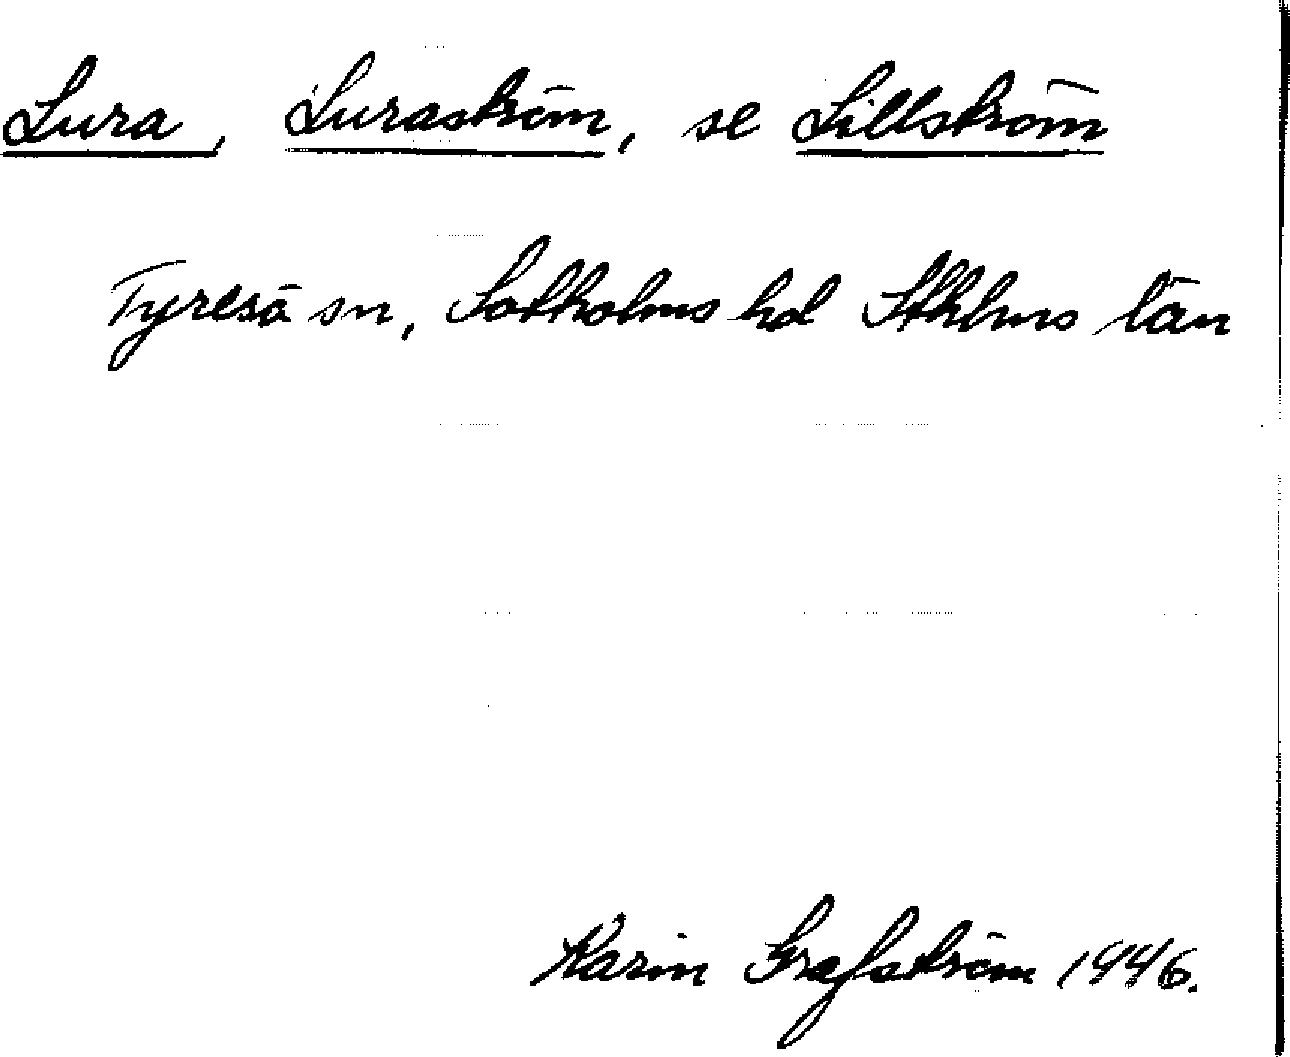 Lura, Luraström, se Lillström
Tyresö sn, Sotholms hd Sthlms län
Karin Grafström 1946.